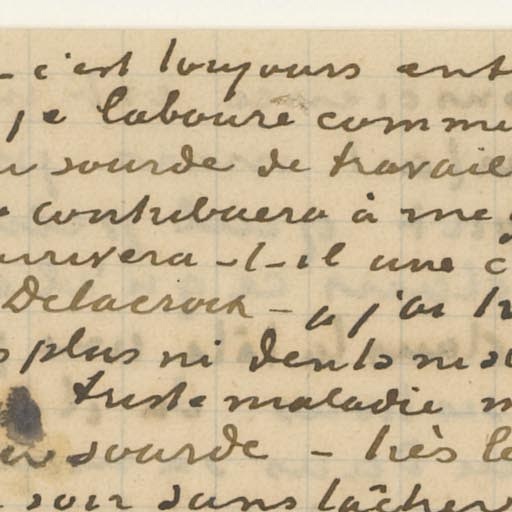 - c'est toujours ent
je laboure comme
sourde de travail
contribuera à me
arrivera-t-il une c
Delacroix - "j'ai tr
plus ni dents ni s
triste maladie m
sourde - très le
soir sans lâcher